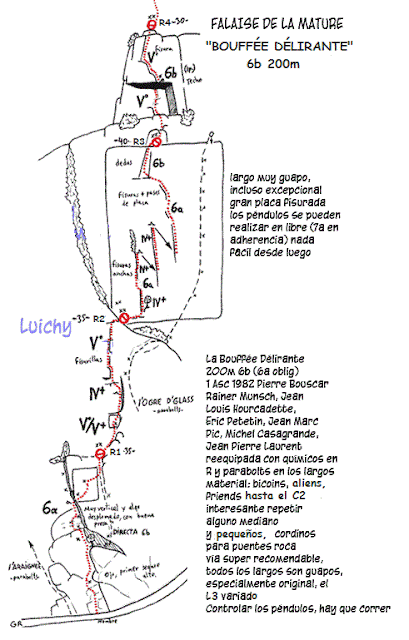 FALAISE DE LA MATURE
"BOUFFÉE DÉLIRANTE"
6b 200m
R4-30-
fisura
V
6b
techo
V°
-40- R3
dedos
6b
fisuras + pasos de placa
6a
largo muy guapo,
incluso excepcional
gran placa fisurada
los péndulos se pueden
realizar en libre (7a en
adherencia) nada
fácil desde luego
IV+
IV+
fisuras anchas
6a
IV+
Luichy
-35- R2
V°
fisurillas
IV+
L'OGRE D'GLASS
-parabolts-
V°/V+
R1-35-
6a
Muy vertical y algo
desplomado, con buena
presa
DIRECTA 6b
Ojo, primer seguro
alto.
L'ARAIGNEE
-parabolts
GR
Hombre
La Bouffée Délirante
200m 6b (6a oblig)
1 Asc 1982 Pierre Bouscar
Rainer Munsch, Jean
Louis Hourcadette,
Eric Petetin, Jean Marc
Pic, Michel Casagrande,
Jean Pierre Laurent
reequipada con químicos en
R y parabolts en los largos
Material: bicoins, aliens,
Friends hasta el C2
interesante repetir
alguno mediano
y pequeños, cordinos
para puentes roca
vía super recomendable,
todos los largos son guapos,
especialmente original, el
L3 variado
Controlar los péndulos, hay que correr